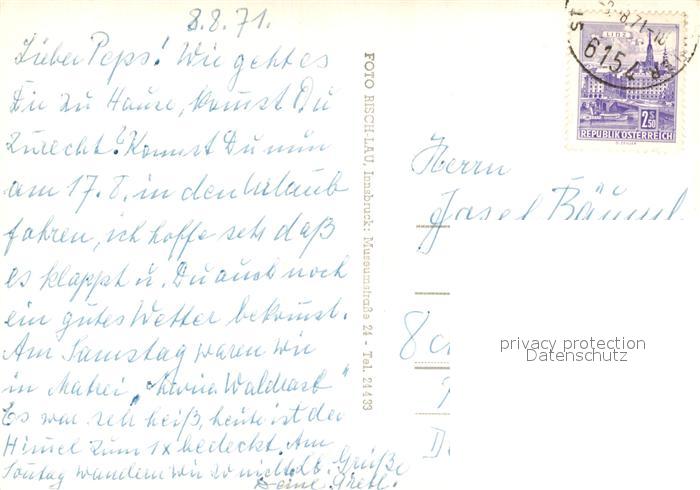 8.8.71.
Lieber Peps! Wie geht es
Dir zu Hause, kommst Du
zurecht? Kannst Du nun
am 17.8. in den Urlaub
fahren, ich hoffe sehr daß
es klappt u. Du auch noch
ein gutes Wetter bekommst.
Am Samstag waren wir
in Matrei "Maria Waldrast"
Es war sehr heiß, heute ist der
Himmel zum 1x bedeckt. Am
Sonntag wandern wir so
Grüße
Deine Gretl.
FOTO RISCH-LAU, Innsbruck: Museumstraße 24 - Tel. 24433
6154
LINZ
2.50
REPUBLIK ÖSTERREICH
Herrn
Josef Bäuml
8
privacy protection
Datenschutz